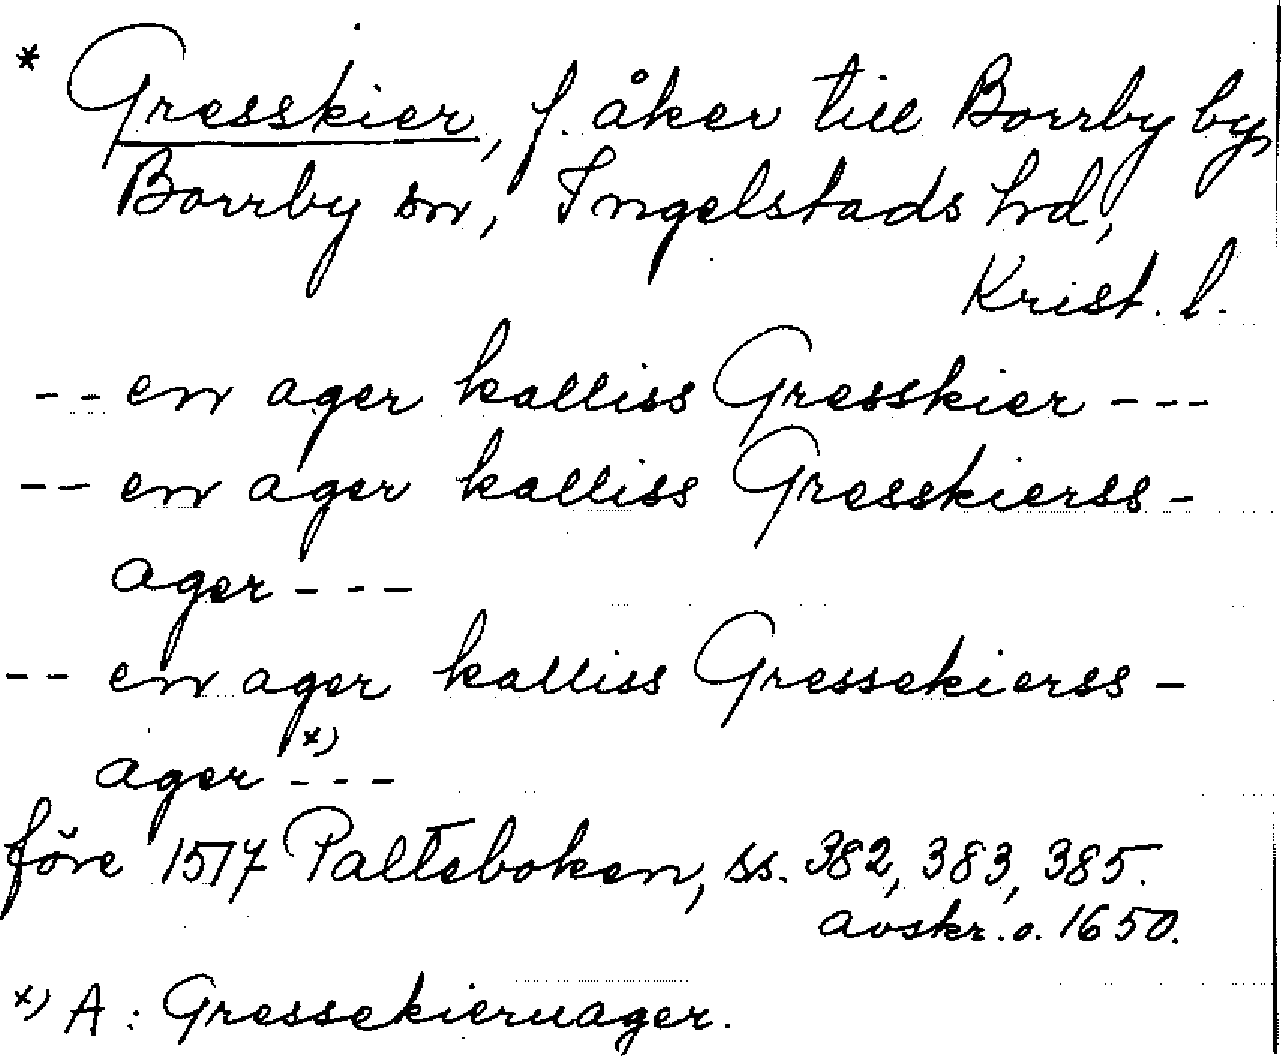 * Gresskier, f. åker till Borrby by,
Borrby sn, Ingelstads hd,
Krist. l.
-- en ager kalliss Gresskier ---
-- en ager kalliss Gresskierss-
ager ---
-- en ager kalliss Gressekierss-
ager x) ---
före 1517 Palteboken, ss. 382, 383, 385.
avskr. o. 1650.
x) A: Gressekieruager.